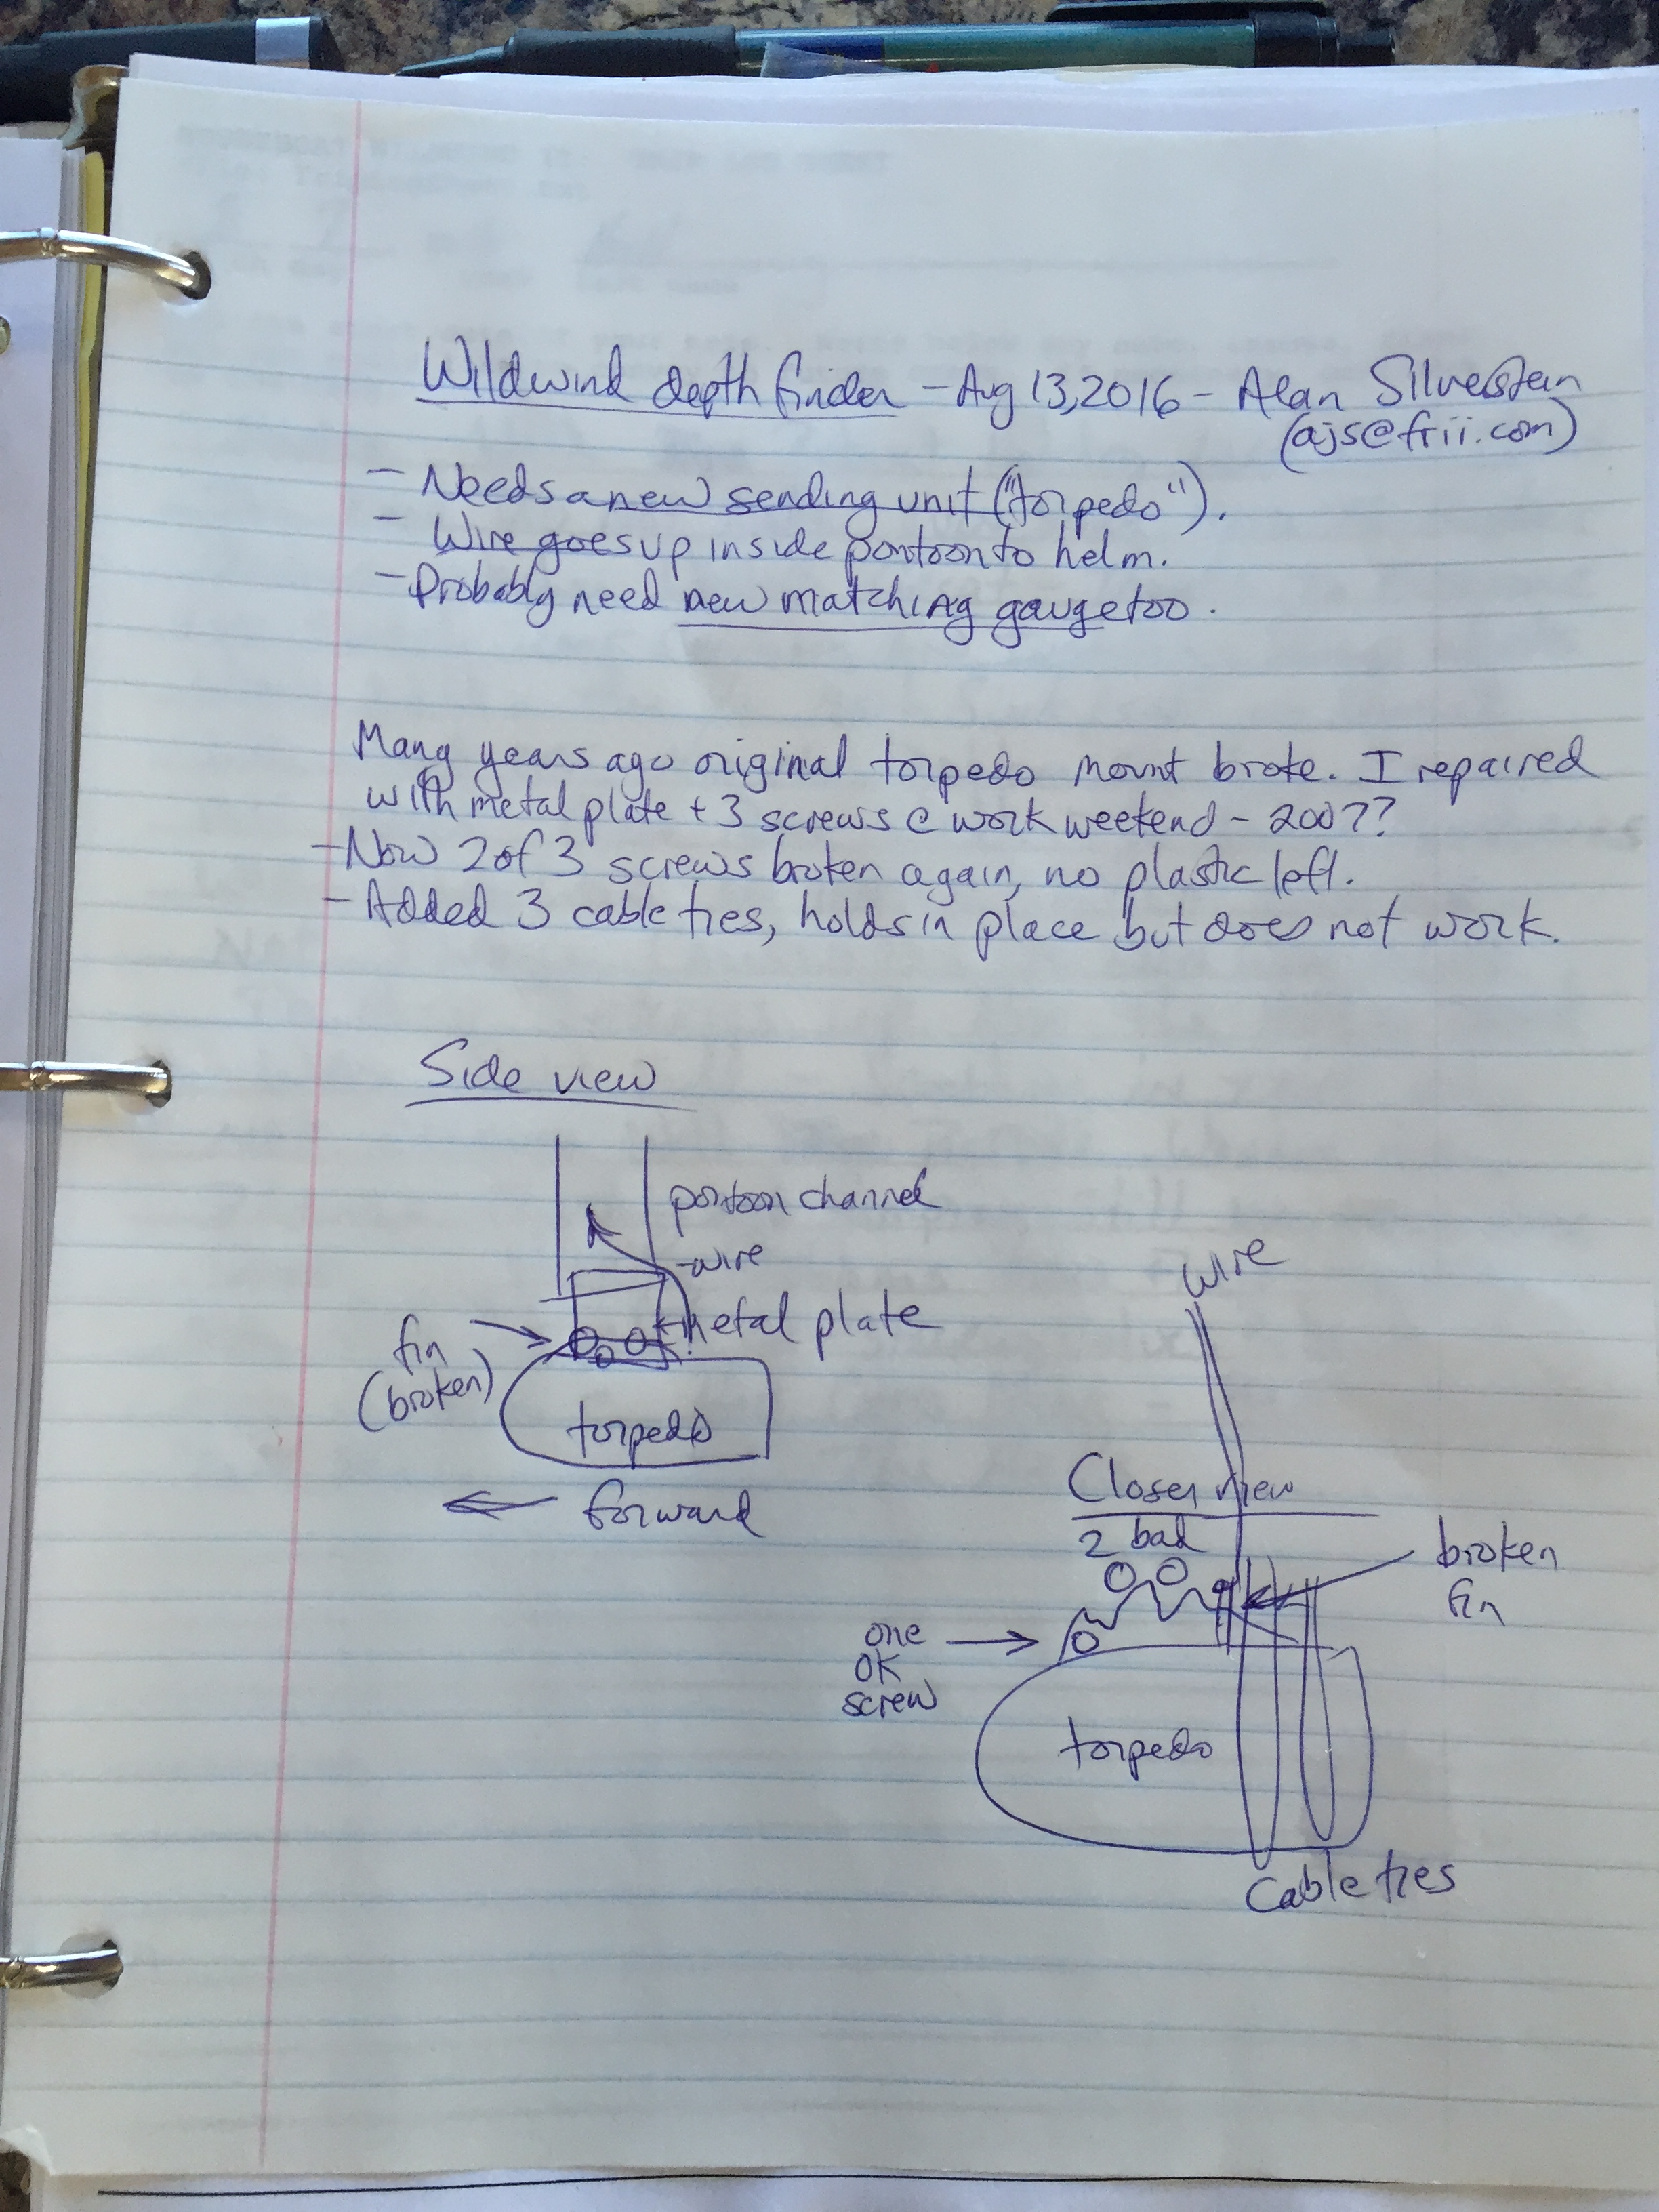 Wildwind depth finder - Aug 13, 2016 - Alan Silverstein
(ajs@frii.com)
- Needs a new sending unit ("torpedo").
- Wire goes up inside pontoon to helm.
- Probably need new matching gauge too.
Many years ago original torpedo mount broke. I repaired
with metal plate + 3 screws @ work weekend - 2007?
- Now 2 of 3 screws broken again, no plastic left.
- Added 3 cable ties, holds in place but does not work.
Side view
pontoon channel
wire
metal plate
fin
(broken)
torpedo
← forward
wire
Closer view
2 bad
broken
fin
one
OK
screw
torpedo
Cable ties